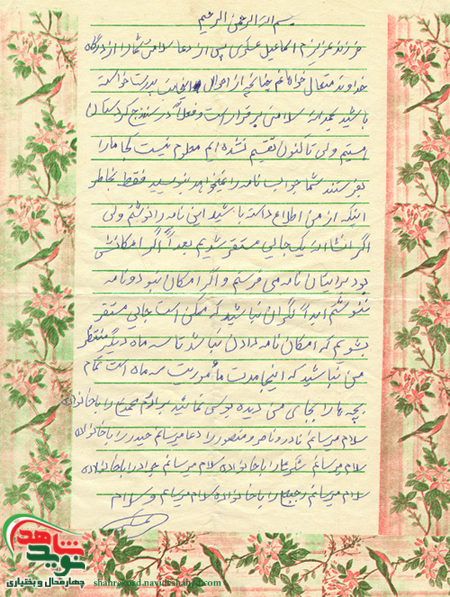 بسم الله الرحمن الرحیم
فرزند عزیزم اسماعیل عسکری پس از دعا سلامتی شما را از درگاه
خداوند متعال خواهانم چنانچه از احوال اینجانب پدرت خواسته
باشید بحمدالله سلامتی برقرار است و فعلاً در سنندج کردستان
هستم ولی تا کنون تقسیم نشده ایم معلوم نیست کجا ما را
بفرستند شما جواب نامه را نمیخواهد بنویسید فقط بخاطر
اینکه از من اطلاع داشته باشید این نامه را نوشتم ولی
اگر انشاالله یک جایی مستقر شدیم بعداً اگر امکاناتش
بود برایتان نامه می فرستم و اگر امکان نبود و نامه
ننوشتم ابداً نگران نباشید که ممکن است جایی مستقر
بشویم که امکان نامه دادن نباشد تا سه ماه دیگر منتظر
من نباشید که اینجا مدت مأموریت سه ماه است تمام
بچه ها را بجای من دیده بوسی نمائید برادرم محمدعلی را با خانواده
سلام میرسانم نادر و ناصر و منصور را دعا میرسانم حیدر را با خانواده
سلام میرسانم را با خانواده سلام میرسانم جواد را با خانواده
سلام میرسانم رجبعلی را با خانواده سلام میرسانم والسلام
نوید شاهد
چهارمحال و بختیاری
shahrekord.navideshahed.com